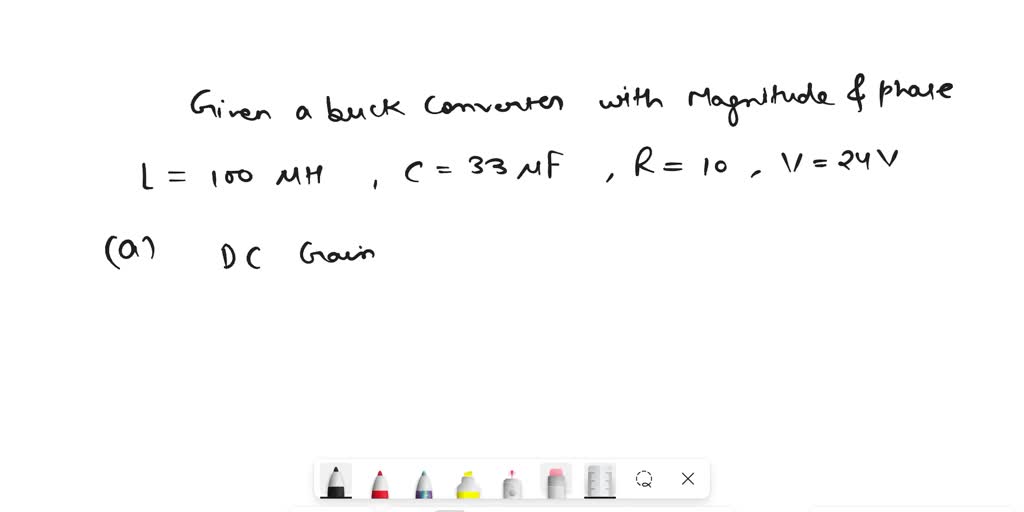 Given a buck converter with Magnitude & phase
L = 100 μH , C = 33 μF , R = 10 , V = 24 V
(a) DC Gain